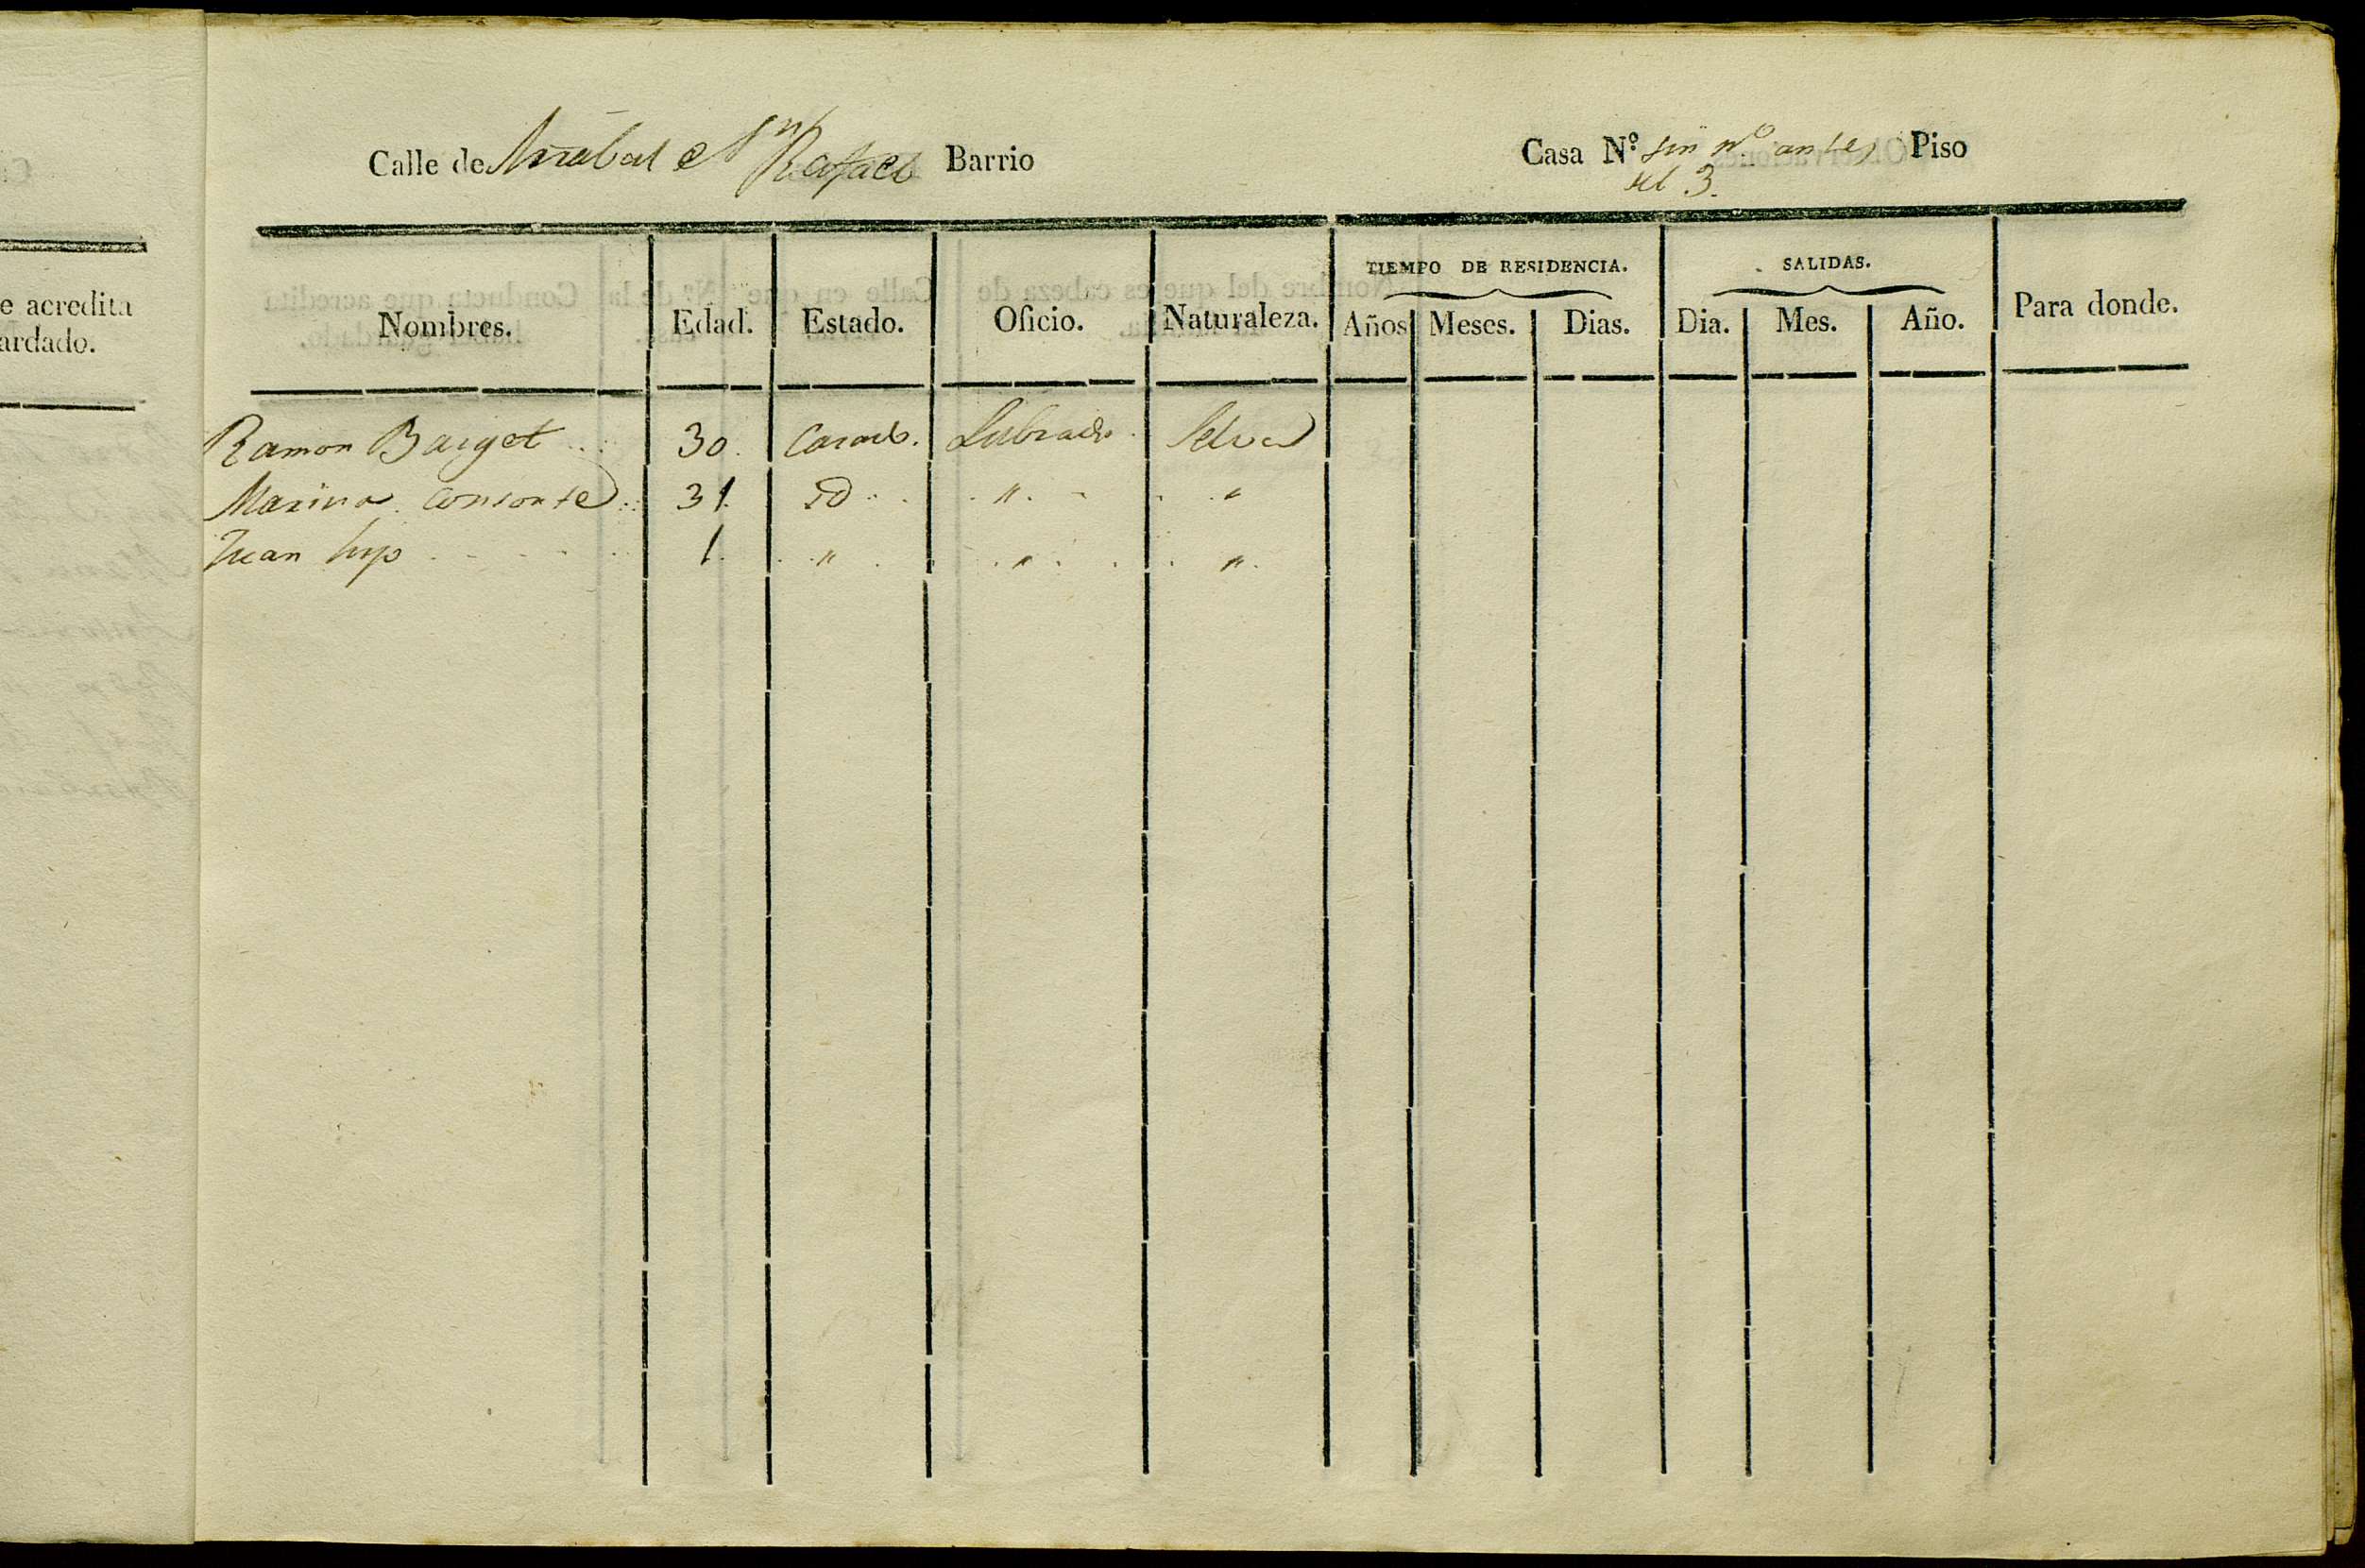 e acredita
ardado.
Calle de Arrabal Sn Rafael Barrio
Casa N.º sin nº antes Piso
del 3.
Nombres. Edad. Estado. Oficio. Naturaleza. TIEMPO DE RESIDENCIA. SALIDAS. Para donde.
Años Meses. Dias. Dia. Mes. Año.
Ramon Barget 30. Casado. Labrador. Selva
Marina Consorte 31. Id " "
Juan hijo 1. " " "